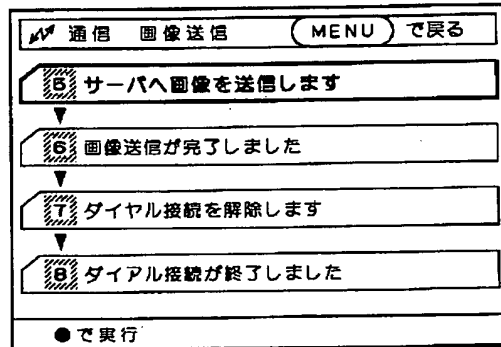 通信 画像送信 MENU で戻る
5 サーバへ画像を送信します
6 画像送信が完了しました
7 ダイヤル接続を解除します
8 ダイアル接続が終了しました
●で実行